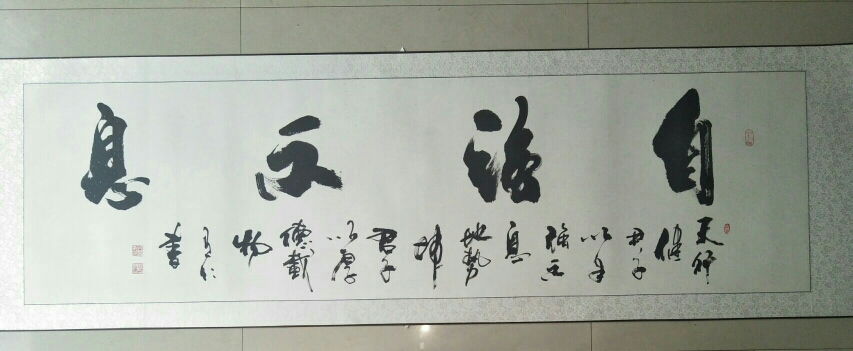 自強不息
天行
健
君子
以自
強不
息
地勢
坤
君子
以厚
德載
物
書